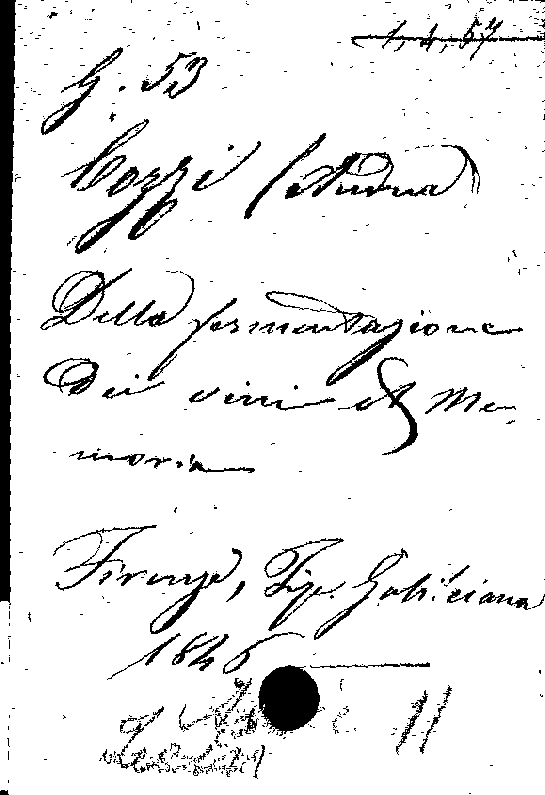 1, 4, 57
G. 53
Cozzi (Andrea)
Della fermentazione
Dei vini & Me-
moria
Firenze, Tip. Galileiana
1846
11